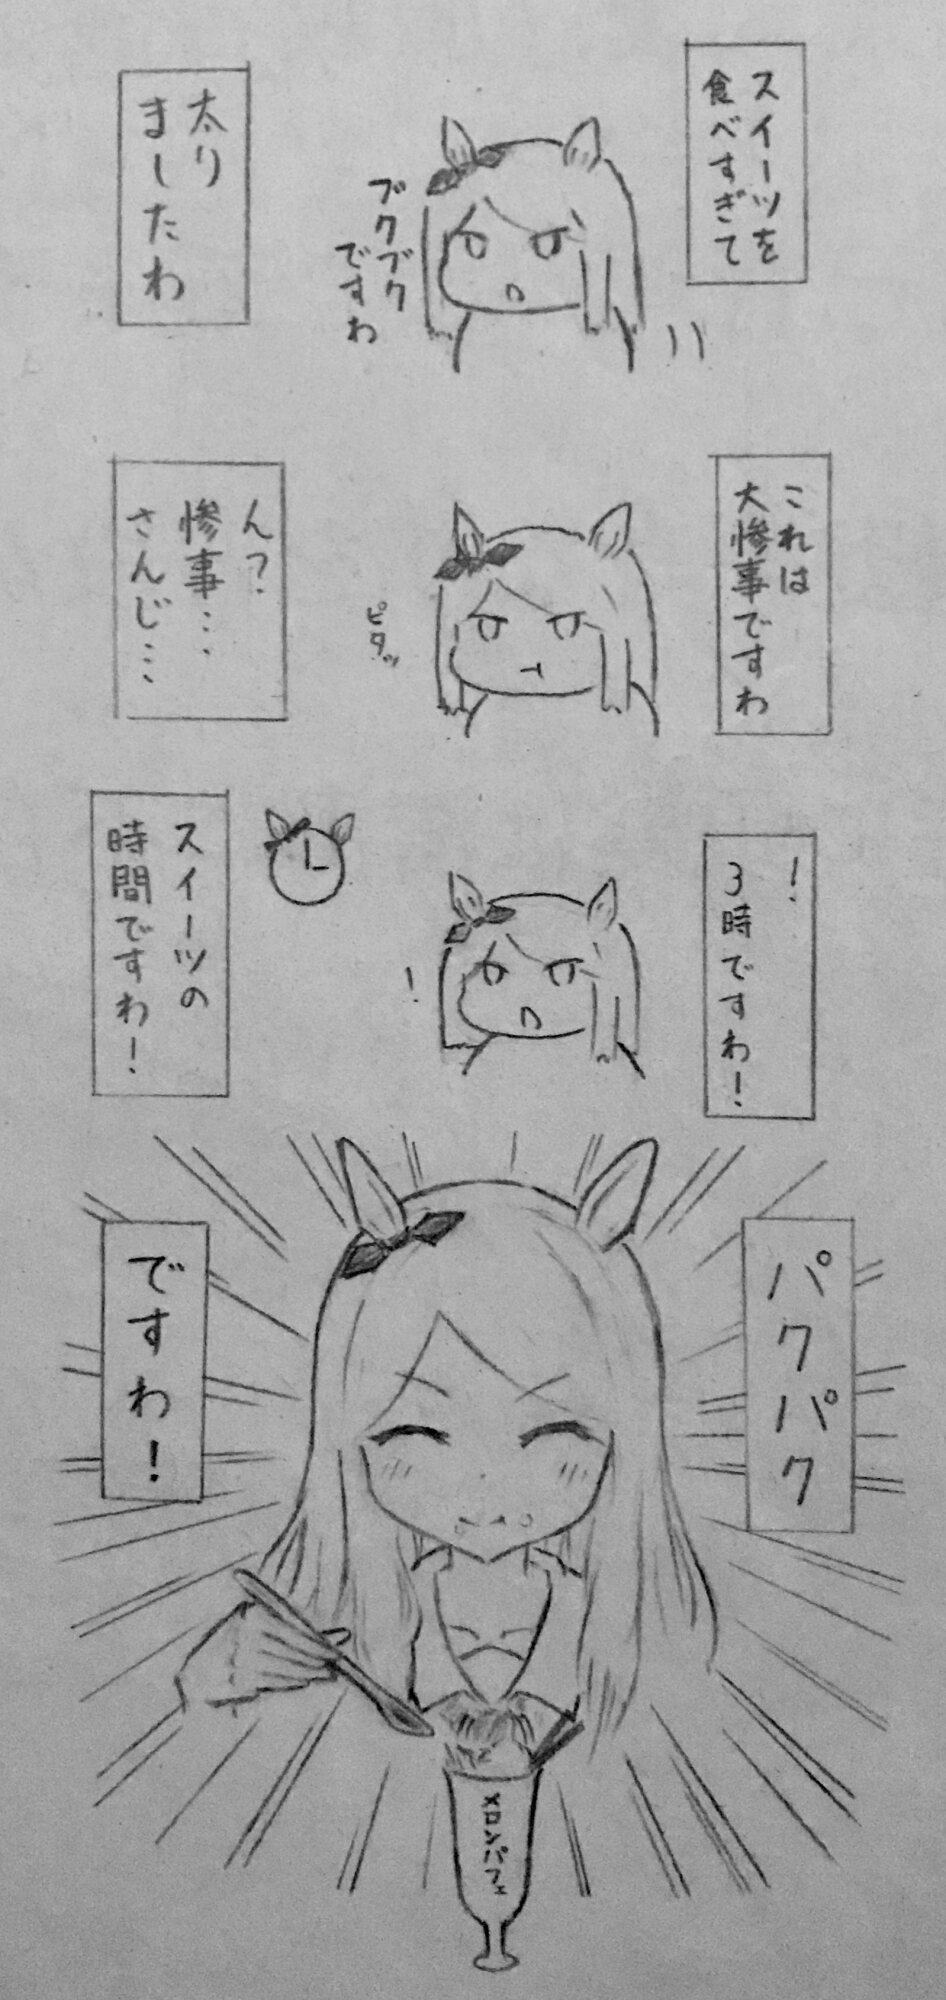 スイーツを
食べすぎて
ブクブク
ですわ
太り
ましたわ
これは
大惨事ですわ
ピタッ
ん?
惨事…
さんじ…
!
3時ですわ!
!
スイーツの
時間ですわ!
パクパク
ですわ!
メロンパフェ